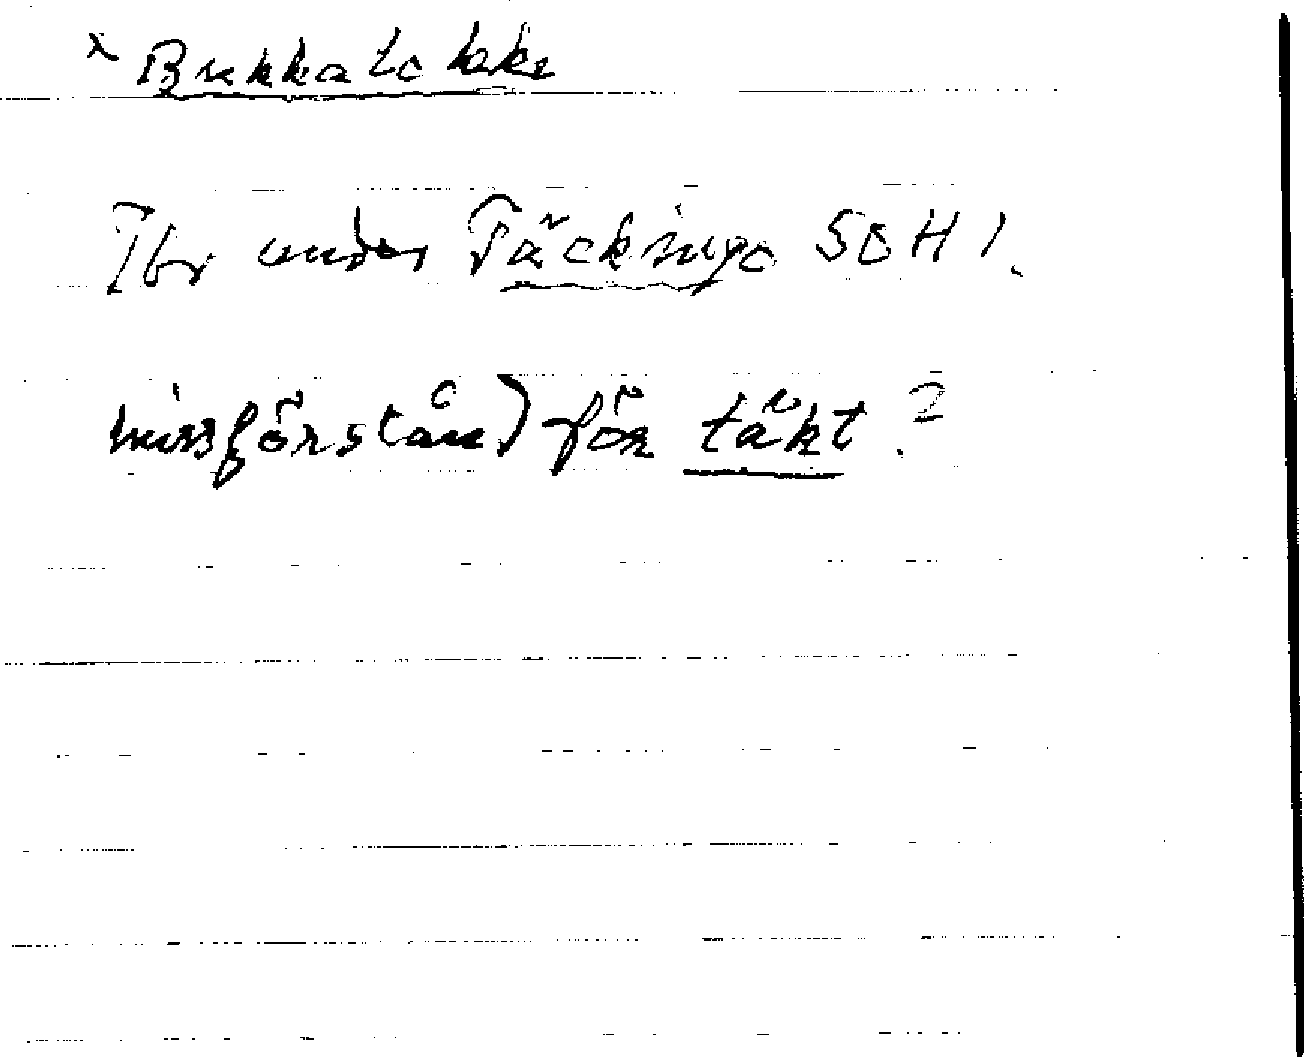 x Bukkatotake
Tbr under Täckinge SOH 1.
missförstånd för täkt?